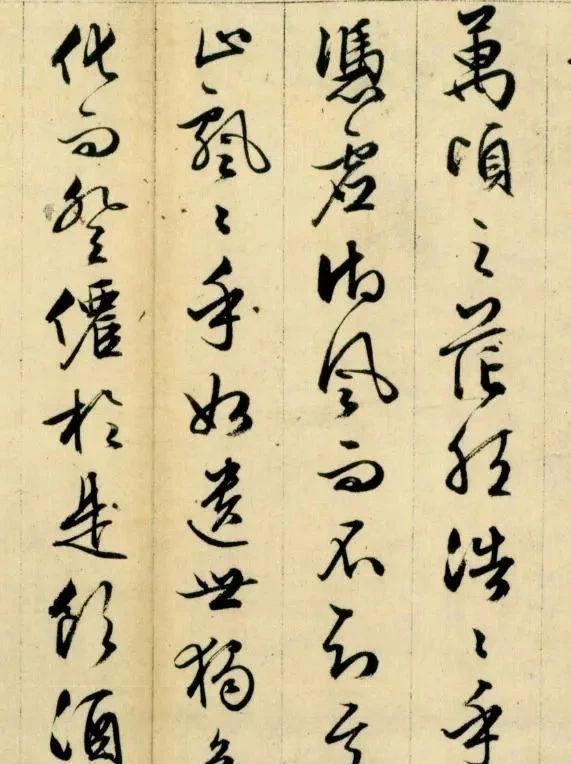 萬頃之茫然浩〻乎
憑虛御風而不知其
止飄〻乎如遺世獨
化而登僊於是飲酒